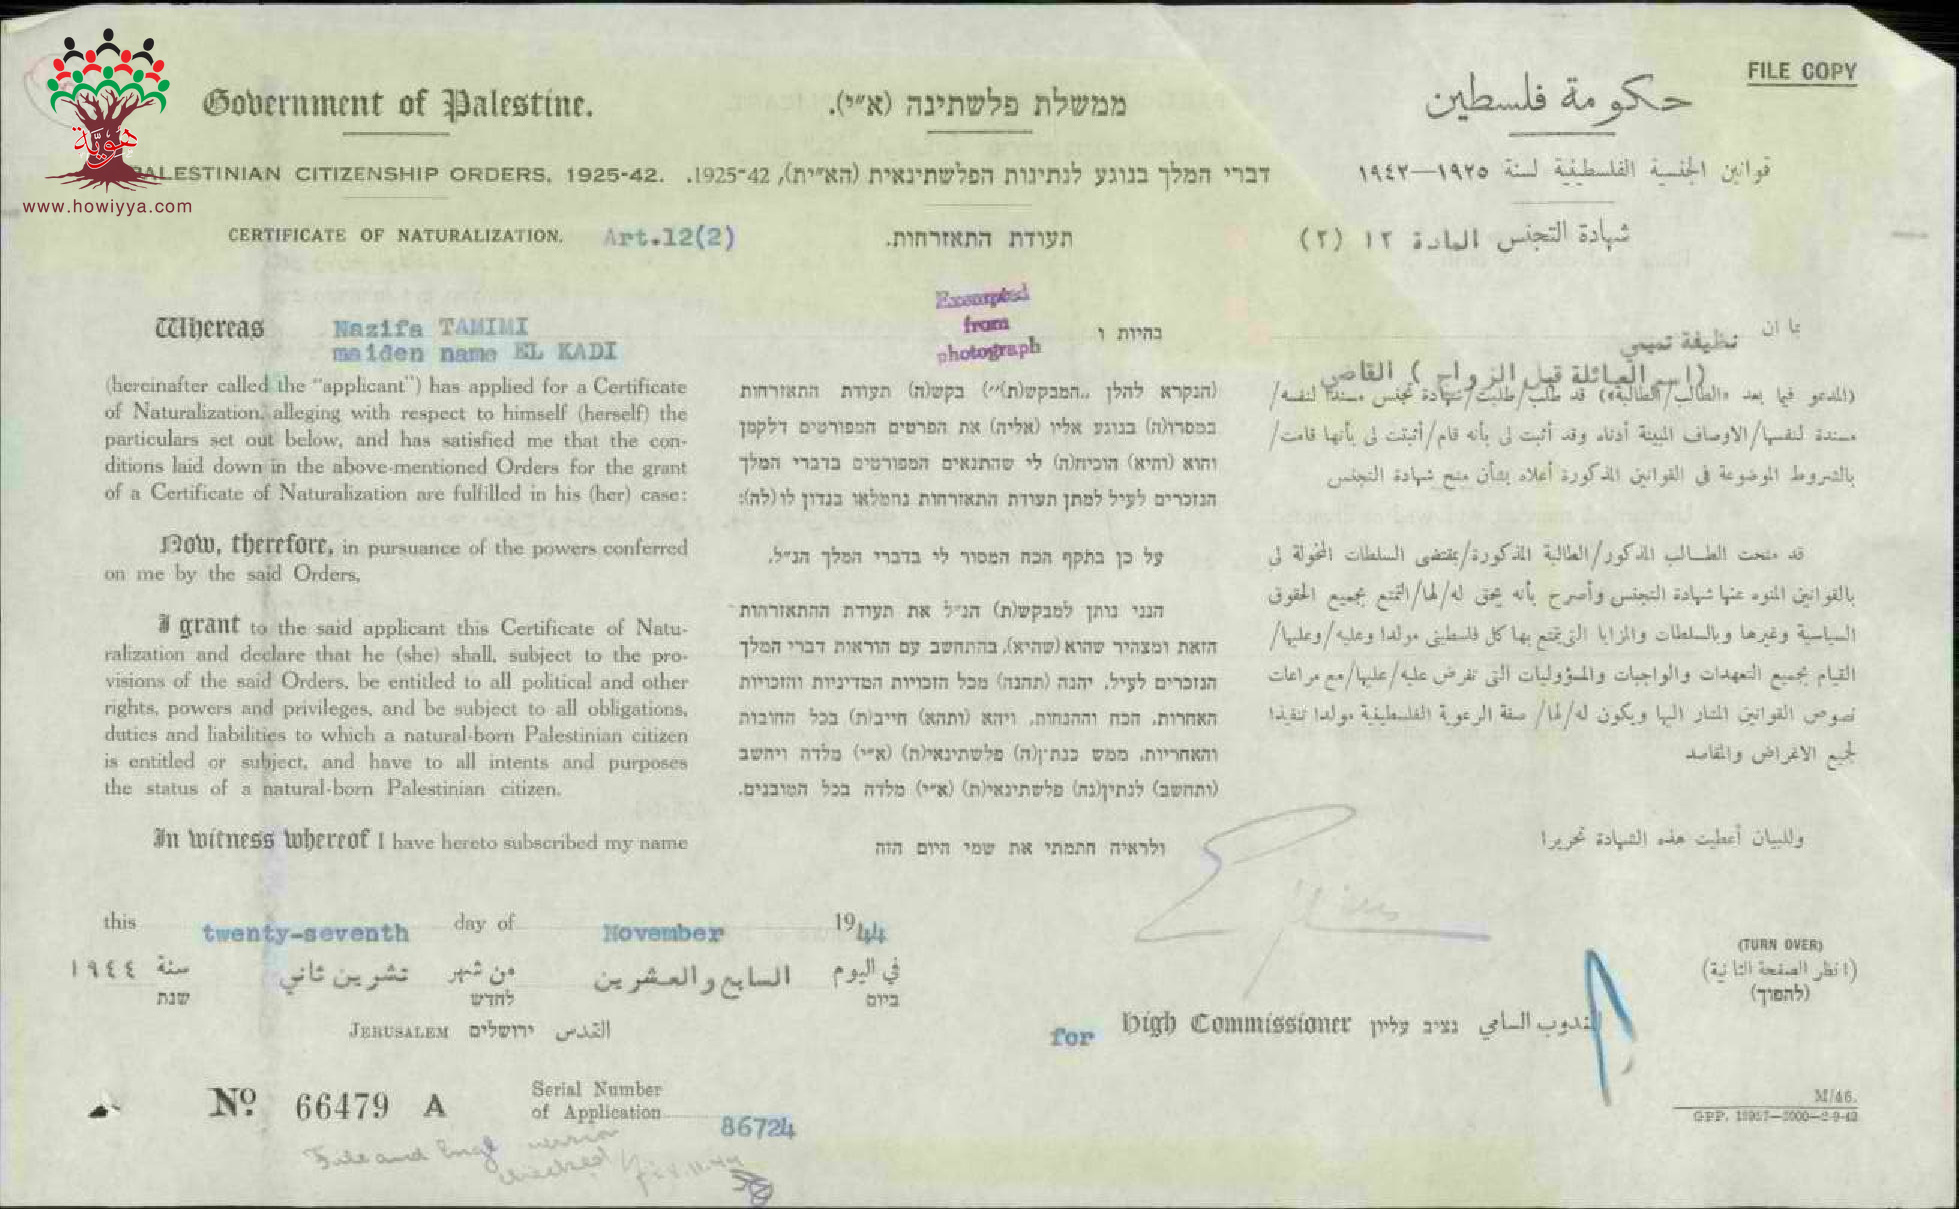 هويّة
www.howiyya.com
FILE COPY
Government of Palestine.
PALESTINIAN CITIZENSHIP ORDERS, 1925-42.
CERTIFICATE OF NATURALIZATION. Art.12(2)
Whereas Nazifa TAMIMI
maiden name EL KADI
(hereinafter called the "applicant") has applied for a Certificate
of Naturalization, alleging with respect to himself (herself) the
particulars set out below, and has satisfied me that the con-
ditions laid down in the above-mentioned Orders for the grant
of a Certificate of Naturalization are fulfilled in his (her) case:
Now, therefore, in pursuance of the powers conferred
on me by the said Orders,
I grant to the said applicant this Certificate of Natu-
ralization and declare that he (she) shall, subject to the pro-
visions of the said Orders, be entitled to all political and other
rights, powers and privileges, and be subject to all obligations,
duties and liabilities to which a natural-born Palestinian citizen
is entitled or subject, and have to all intents and purposes
the status of a natural-born Palestinian citizen.
In witness whereof I have hereto subscribed my name
ממשלת פלשתינה (א״י).
דברי המלך בנוגע לנתינות הפלשתינאית (הא״ית), 1925-42.
תעודת התאזרחות.
Exempted
from
photograph
בהיות ו
(הנקרא להלן ,,המבקש(ת)״) בקש(ה) תעודת התאזרחות
במסרו(ה) בנוגע אליו (אליה) את הפרטים המפורטים דלקמן
והוא (והיא) הוכיח(ה) לי שהתנאים המפורטים בדברי המלך
הנזכרים לעיל למתן תעודת התאזרחות נתמלאו בנדון לו (לה):
על כן בתקף הכח המסור לי בדברי המלך הנ״ל,
הנני נותן למבקש(ת) הנ״ל את תעודת ההתאזרחות
הזאת ומצהיר שהוא (שהיא), בהתחשב עם הוראות דברי המלך
הנזכרים לעיל, יהנה (תהנה) מכל הזכויות המדיניות והזכויות
האחרות, הכח וההנחות, ויהא (ותהא) חייב(ת) בכל החובות
והאחריות, ממש כנתין(ה) פלשתינאי(ת) (א״י) מלדה ויחשב
(ותחשב) לנתין(נה) פלשתינאי(ת) (א״י) מלדה בכל המובנים.
ולראיה חתמתי את שמי היום הזה
حكومة فلسطين
قوانين الجنسية الفلسطينية لسنة ١٩٢٥—١٩٤٢
شهادة التجنس المادة ١٢ (٢)
بما ان نظيفة تميمي
(اسم العائلة قبل الزواج ) القاضي
(المدعو فيما بعد «الطالب/الطالبة») قد طلب/طلبت/شهادة تجنس مسندا لنفسه/
مسندة لنفسها/الاوصاف المبينة أدناه وقد أثبت لي بأنه قام/أثبتت لي بأنها قامت/
بالشروط الموضوعة في القوانين المذكورة أعلاه بشأن منح شهادة التجنس
قد منحت الطالب المذكور/الطالبة المذكورة/بمقتضى السلطات المخولة لي
بالقوانين المنوه عنها شهادة التجنس وأصرح بأنه يحق له/لها/التمتع بجميع الحقوق
السياسية وغيرها وبالسلطات والمزايا التي يتمتع بها كل فلسطيني مولدا وعليه/وعليها/
القيام بجميع التعهدات والواجبات والمسؤوليات التي تفرض عليه/عليها/مع مراعات
نصوص القوانين المشار اليها ويكون له/لها/ صفة الرعوية الفلسطينية مولدا تنفيذا
لجميع الاغراض والمقاصد
وللبيان أعطيت هذه الشهادة تحريرا
this twenty-seventh day of November 1944
في اليوم السابع والعشرين من شهر تشرين ثاني سنة ١٩٤٤
ביום לחדש שנת
JERUSALEM ירושלים القدس
for High Commissioner נציב עליון المندوب السامي
(TURN OVER)
(انظر الصفحة الثانية)
(להפוך)
Nº 66479 A
Serial Number
of Application 86724
File and Engl version
checked
M/46.